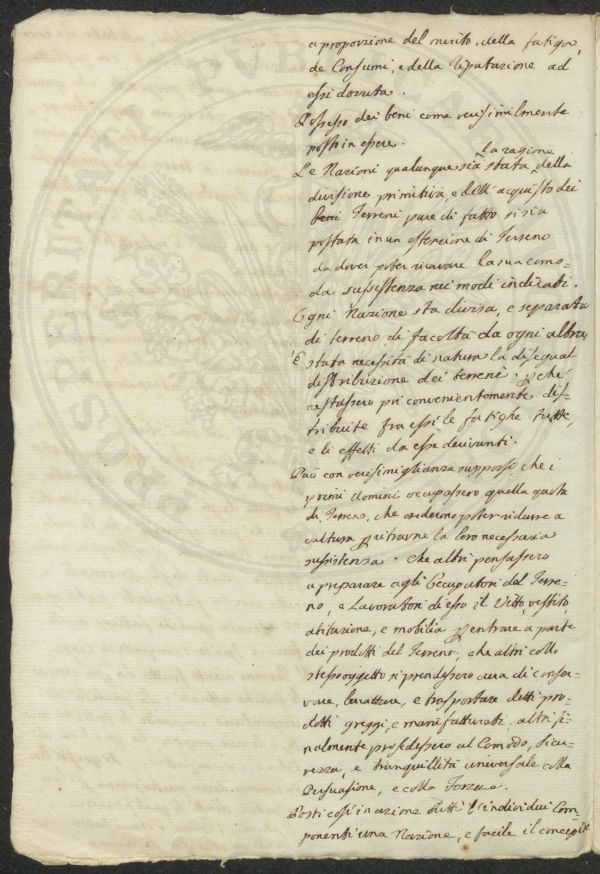 a proporzione del merito, della fatiga,
de Consumi, e della riputazione ad
essi dovuta.
Possesso dei beni come verisimilmente
posto in essere.
Le Nazioni qualunque sia stata la ragione della
divisione primitiva, e dell'acquisto dei
beni Terreni pure di fatto si sia
postata in un estenzione di Terreno
da dover poter ricavare la sua como-
da sussistenza nei modi indicati.
Ogni Nazione sta divisa, e separata
di terreno, di facoltà da ogni altra,
È stata necessità di natura la disegual
distribuzione dei terreni. perche
restassero più convenientemente dis-
tribuite fra essi le fatighe tutte,
e li effetti da esse derivanti.
Può con verisimiglianza supporsi che i
primi domini occupassero quella quota
di Terreno, che crederono poter ridurre a
cultura per ritrarne la loro necessaria
sussistenza. Che altri pensassero
a preparare agli Occupatori del Terre-
no, e Lavoratori di esso il Vitto, vestito,
abitazione, e mobilia per entrare a parte
dei prodotti del Terreno; che altri collo
stesso oggetto si prendessero cura di conser-
vare, barattare, e trasportare detti pro-
dotti greggi, e manifatturati, altri fi-
nalmente presedessero al Comodo, sicu-
rezza, e tranquillità universale colla
Persuasione, e colla Forza.
Posti così in azione tutti l'individui Com-
ponenti una Nazione, e facile il concep